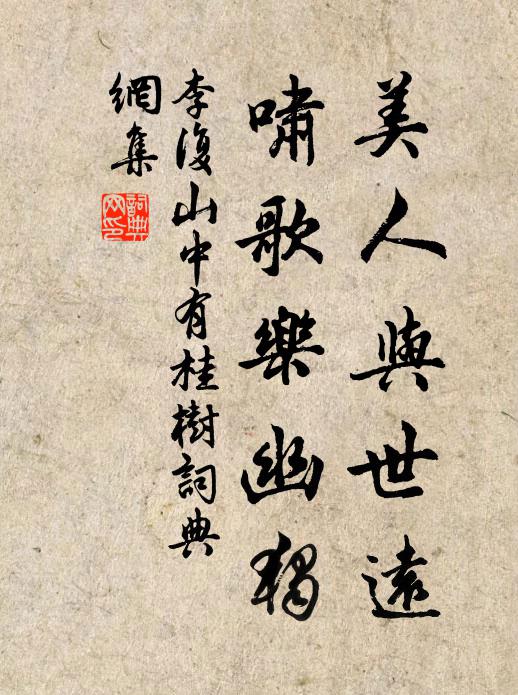 美人與世遠
嘯歌樂幽獨
李復山中有桂樹詞典
網集
詞典
网印